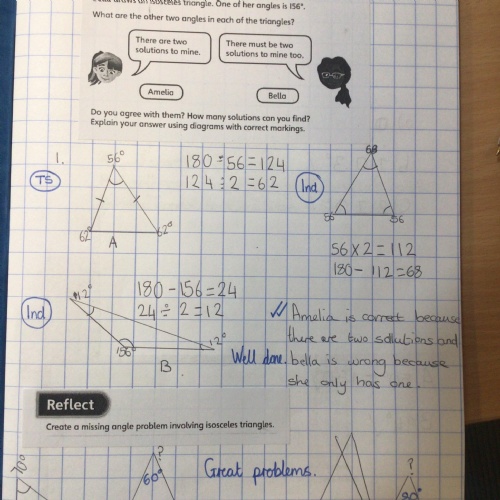 isosceles triangle. One of her angles is 156°.
What are the other two angles in each of the triangles?
There are two
solutions to mine.
There must be two
solutions to mine too.
Amelia
Bella
Do you agree with them? How many solutions can you find?
Explain your answer using diagrams with correct markings.
1.
56°
TS
62°
62°
A
180 - 56 = 124
124 ÷ 2 = 62
Ind
68
56
56
56 x 2 = 112
180 - 112 = 68
Ind
12°
156°
12°
B
180 - 156 = 24
24 ÷ 2 = 12
Amelia is correct because
there are two solutions and
bella is wrong because
she only has one.
Well done.
Reflect
Create a missing angle problem involving isosceles triangles.
70°
?
60°
Great problems.
?